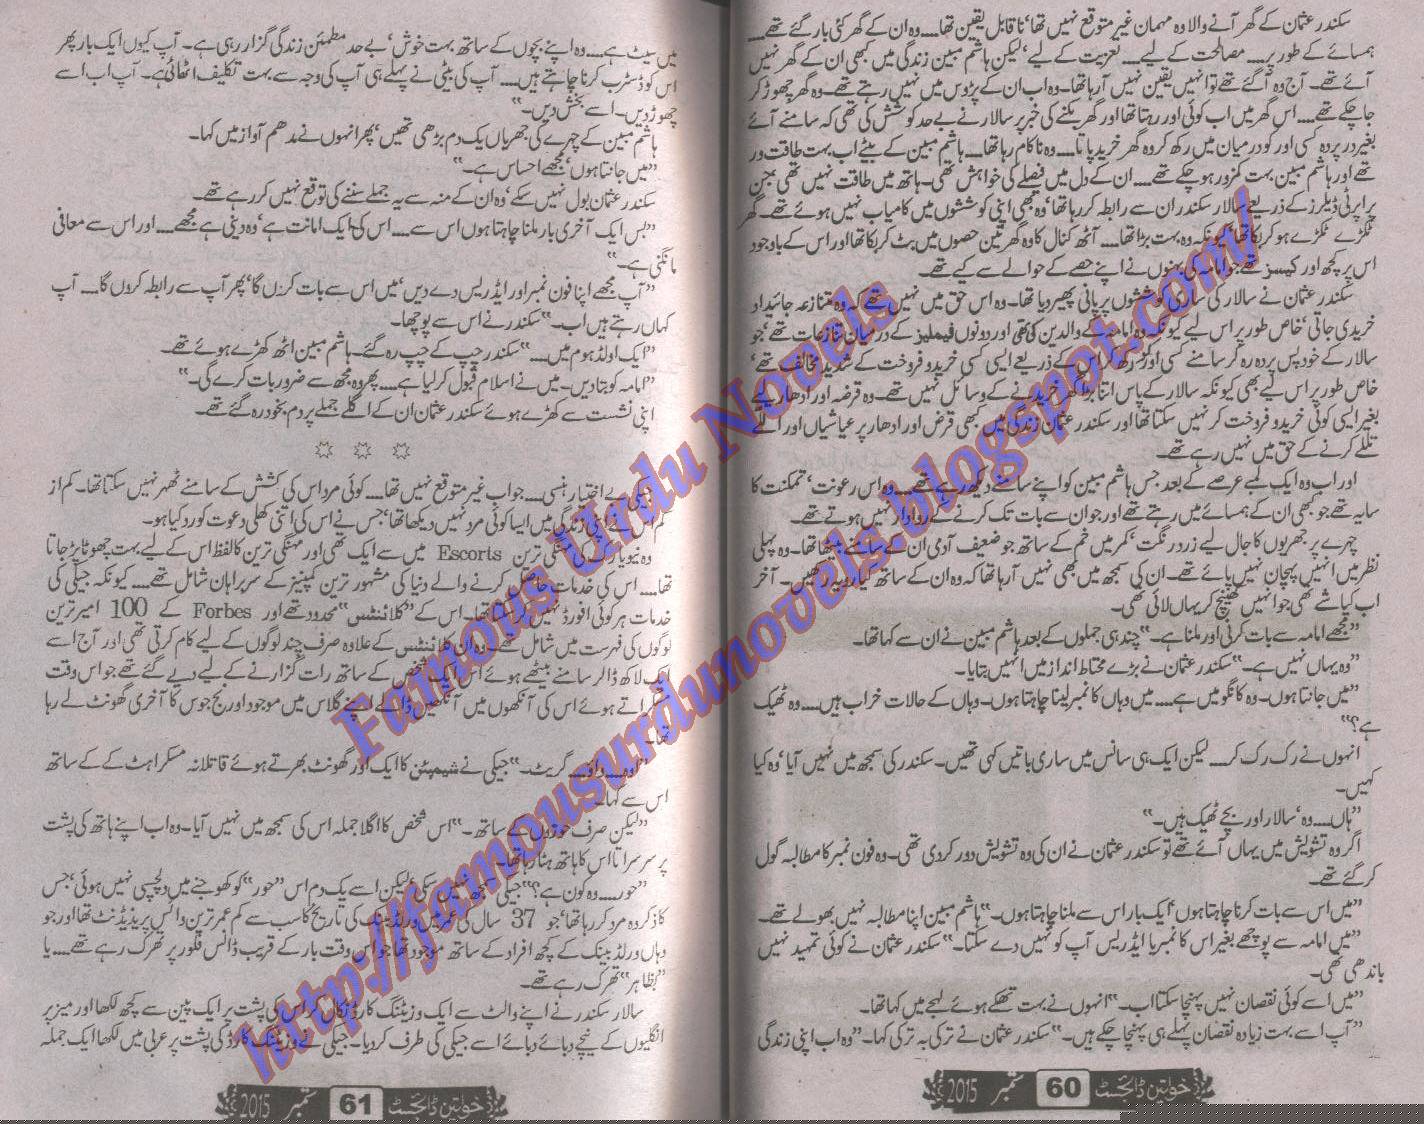 سکندر عثمان کے گھر آنے والا وہ مہمان غیر متوقع نہیں تھا' ناقابل یقین تھا.... وہ ان کے گھر کئی بار گئے تھے....
ہمسائے کے طور پر.... مصالحت کے لیے.... تعزیت کے لیے' لیکن ہاشم مبین زندگی میں کبھی ان کے گھر نہیں
آئے تھے۔ آج وہ آگئے تھے تو انہیں یقین نہیں آرہا تھا۔ وہ اب ان کے پڑوس میں نہیں رہتے تھے۔ وہ گھر چھوڑ کر
جاچکے تھے.... اس گھر میں اب کوئی اور رہتا تھا اور گھر بکنے کی خبر پر سالار نے بے حد کوشش کی تھی کہ سامنے آئے
بغیر در پردہ کسی اور کو درمیان میں رکھ کر وہ گھر خرید پاتا.... وہ ناکام رہا تھا.... ہاشم مبین کے بیٹے اب بہت طاقت ور
تھے اور ہاشم مبین بہت کمزور ہوچکے تھے.... ان کے دل میں فیصلے کی خواہش تھی۔ ہاتھ میں طاقت نہیں تھی جن
پراپرٹی ڈیلرز کے ذریعے سالار سکندر ان سے رابطہ کررہا تھا' وہ بھی اپنی کوششوں میں کامیاب نہیں ہوئے تھے۔ گھر
ٹکڑے ٹکڑے ہو کر بکا تھا' کیونکہ وہ بہت بڑا تھا.... آٹھ کنال کا وہ گھر تین حصوں میں بٹ کر بکا تھا اور اس کے باوجود
اس پر کچھ اور کیسز تھے جو امامہ کی بہنوں نے اپنے حصے کے حوالے سے کیے تھے۔
سکندر عثمان نے سالار کی ساری کوششوں پر پانی پھیر دیا تھا۔ وہ اس حق میں نہیں تھے کہ وہ متنازعہ جائیداد
خریدی جاتی' خاص طور پر اس لیے کیونکہ وہ امامہ کے والدین کی تھی اور دونوں فیملیز کے درمیان تنازعات تھے' جو
سالار کے خود پس پردہ رہ کر سامنے کسی اور کو رکھ کر اس کے ذریعے ایسی کسی خرید و فروخت کے شدید مخالف تھے'
خاص طور پر اس لیے بھی کیونکہ سالار کے پاس اتنا بڑا گھر خریدنے کے وسائل نہیں تھے۔ وہ قرضہ اور ادھار لیے
بغیر ایسی کوئی خرید و فروخت کر نہیں سکتا تھا اور سکندر عثمان زندگی میں کبھی قرض اور ادھار پر عیاشیاں اور اللے
تللے کرنے کے حق میں نہیں رہے تھے۔
اور اب وہ ایک لمبے عرصے کے بعد جس ہاشم مبین کو اپنے سامنے دیکھ رہے تھے.... وہ اس رعونت' تمکنت کا
سایہ تھے جو کبھی ان کے ہمسائے میں رہتے تھے اور جو ان سے بات تک کرنے کے روادار نہیں ہوتے تھے۔
چہرے پر جھریوں کا جال لیے زرد رنگت' کمر میں خم کے ساتھ جو ضعیف آدمی ان کے سامنے بیٹھا تھا۔ وہ پہلی
نظر میں انہیں پہچان نہیں پائے تھے۔ ان کی سمجھ میں بھی نہیں آرہا تھا کہ وہ ان کے ساتھ کیا رویہ رکھیں۔ آخر
اب کیا شے تھی جو انہیں کھینچ کر یہاں لائی تھی۔
"مجھے امامہ سے بات کرنی اور ملنا ہے۔" چند ہی جملوں کے بعد ہاشم مبین نے ان سے کہا تھا۔
"وہ یہاں نہیں ہے۔" سکندر عثمان نے بڑے محتاط انداز میں انہیں بتایا۔
"میں جانتا ہوں۔ وہ کانگو میں ہے.... میں وہاں کا نمبر لینا چاہتا ہوں۔ وہاں کے حالات خراب ہیں.... وہ ٹھیک
ہے؟"
انہوں نے رک رک کر.... لیکن ایک ہی سانس میں ساری باتیں کہی تھیں۔ سکندر کی سمجھ میں نہیں آیا' وہ کیا
کہیں۔
"ہاں.... وہ' سالار اور بچے ٹھیک ہیں۔"
اگر وہ تشویش میں یہاں آئے تھے تو سکندر عثمان نے ان کی وہ تشویش دور کردی تھی۔ وہ فون نمبر کا مطالبہ گول
کر گئے تھے۔
"میں اس سے بات کرنا چاہتا ہوں' ایک بار اس سے ملنا چاہتا ہوں۔" ہاشم مبین اپنا مطالبہ نہیں بھولے تھے۔
"میں امامہ سے پوچھے بغیر اس کا نمبر یا ایڈریس آپ کو نہیں دے سکتا۔" سکندر عثمان نے کوئی تمہید نہیں
باندھی تھی۔
"میں اسے کوئی نقصان نہیں پہنچا سکتا اب۔" انہوں نے بہت تھکے ہوئے لہجے میں کہا تھا۔
"آپ اسے بہت زیادہ نقصان پہلے ہی پہنچا چکے ہیں۔" سکندر عثمان نے ترکی بہ ترکی کہا۔ "وہ اب اپنی زندگی
خواتین ڈائجسٹ 60 ستمبر 2015
میں سیٹ ہے.... وہ اپنے بچوں کے ساتھ بہت خوش' بے حد مطمئن زندگی گزار رہی ہے۔ آپ کیوں ایک بار پھر
اس کو ڈسٹرب کرنا چاہتے ہیں.... آپ کی بیٹی نے پہلے ہی آپ کی وجہ سے بہت تکلیف اٹھائی ہے۔ آپ اب اسے
چھوڑ دیں۔ اسے بخش دیں۔"
ہاشم مبین کے چہرے کی جھریاں یک دم بڑھی تھیں' پھر انہوں نے مدھم آواز میں کہا۔
"میں جانتا ہوں' مجھے احساس ہے۔"
سکندر عثمان بول نہیں سکے' وہ ان کے منہ سے یہ جملے سننے کی توقع نہیں کررہے تھے۔
"بس ایک آخری بار ملنا چاہتا ہوں اس سے.... اس کی ایک امانت ہے' وہ دینی ہے مجھے.... اور اس سے معافی
مانگنی ہے۔"
"آپ مجھے اپنا فون نمبر اور ایڈریس دے دیں' میں اس سے بات کروں گا' پھر آپ سے رابطہ کروں گا.... آپ
کہاں رہتے ہیں اب۔" سکندر نے اس سے پوچھا۔
"ایک اولڈ ہوم میں....." سکندر چپ کے چپ رہ گئے۔ ہاشم مبین اٹھ کھڑے ہوئے تھے۔
"امامہ کو بتادیں۔ میں نے اسلام قبول کرلیا ہے.... پھر وہ مجھ سے ضرور بات کرے گی۔"
اپنی نشست سے کھڑے ہوئے سکندر عثمان ان کے اگلے جملے پر دم بخود رہ گئے تھے۔
☼ ☼ ☼
جیکی بے اختیار ہنسی.... جواب غیر متوقع نہیں تھا.... کوئی مرد اس کی کشش کے سامنے ٹھہر نہیں سکتا تھا۔ کم از
کم اس نے اپنی زندگی میں ایسا کوئی مرد نہیں دیکھا تھا' جس نے اس کی اتنی کھلی دعوت کو رد کیا ہو۔
وہ نیویارک کی مہنگی ترین Escorts میں سے ایک تھی اور مہنگی ترین کا لفظ اس کے لیے بہت چھوٹا پڑ جاتا
تھا.... اس کی خدمات حاصل کرنے والے دنیا کی مشہور ترین کمپنیز کے سربراہان شامل تھے.... کیونکہ جیکی کی
خدمات ہر کوئی افورڈ نہیں کرسکتا تھا۔ اس کے "کلائنٹس" محدود تھے اور Forbes کے 100 امیر ترین
لوگوں کی فہرست میں شامل تھے۔ وہ ان کلائنٹس کے علاوہ صرف چند لوگوں کے لیے کام کرتی تھی اور آج اسے
ایک لاکھ ڈالر سامنے بیٹھے ہوئے اس ایک شخص کے ساتھ رات گزارنے کے لیے دیے گئے تھے جو اس وقت
مسکراتے ہوئے اس کی آنکھوں میں آنکھیں ڈالے اپنے گلاس میں موجود اورنج جوس کا آخری گھونٹ لے رہا
تھا۔
"اوہ.... واؤ.... گریٹ۔" جیکی نے شیمپئن کا ایک اور گھونٹ بھرتے ہوئے قاتلانہ مسکراہٹ کے ساتھ
اس سے کہا۔
"لیکن صرف حوروں کے ساتھ۔" اس شخص کا اگلا جملہ اس کی سمجھ میں نہیں آیا۔ وہ اب اپنے ہاتھ کی پشت
پر سرسراتا اس کا ہاتھ ہٹا رہا تھا۔
"حور.... وہ کون ہے؟" جیکی سمجھ نہیں سکی' لیکن اسے یک دم اس "حور" کو کھوجنے میں دلچسپی نہیں ہوئی' جس
کا ذکر وہ مرد کررہا تھا' جو 37 سال کی عمر میں ورلڈ بینک کی تاریخ کا سب سے کم عمر ترین وائس پریذیڈنٹ تھا اور جو
وہاں ورلڈ بینک کے کچھ افراد کے ساتھ موجود تھا جو اس وقت بار کے قریب ڈانس فلور پر تھرک رہے تھے.... یا
"بظاہر" تھرک رہے تھے۔
سالار سکندر نے اپنے والٹ سے ایک وزیٹنگ کارڈ نکال کر اس کی پشت پر ایک پین سے کچھ لکھا اور میز پر
انگلیوں کے نیچے دبائے دبائے اسے جیکی کی طرف کردیا۔ جیکی نے وزیٹنگ کارڈ کی پشت پر عربی میں لکھا ایک جملہ
خواتین ڈائجسٹ 61 ستمبر 2015
Famous Urdu Novels
http://famousurdunovels.blogspot.com/